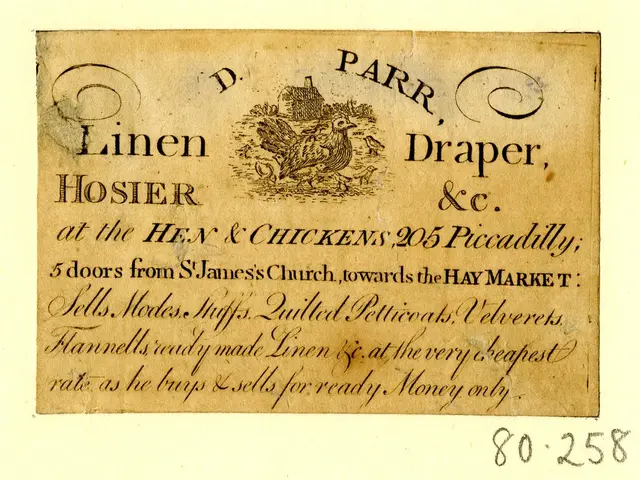 D. PARR,
Linen Draper,
HOSIER &c.
at the HEN & CHICKENS, 205 Piccadilly;
5 doors from St. James's Church, towards the HAY MARKET:
Sells Modes, Stuffs, Quilted Petticoats, Velverets,
Flannells, ready made Linen &c. at the very cheapest
rate, as he buys & sells for ready Money only.
80.258